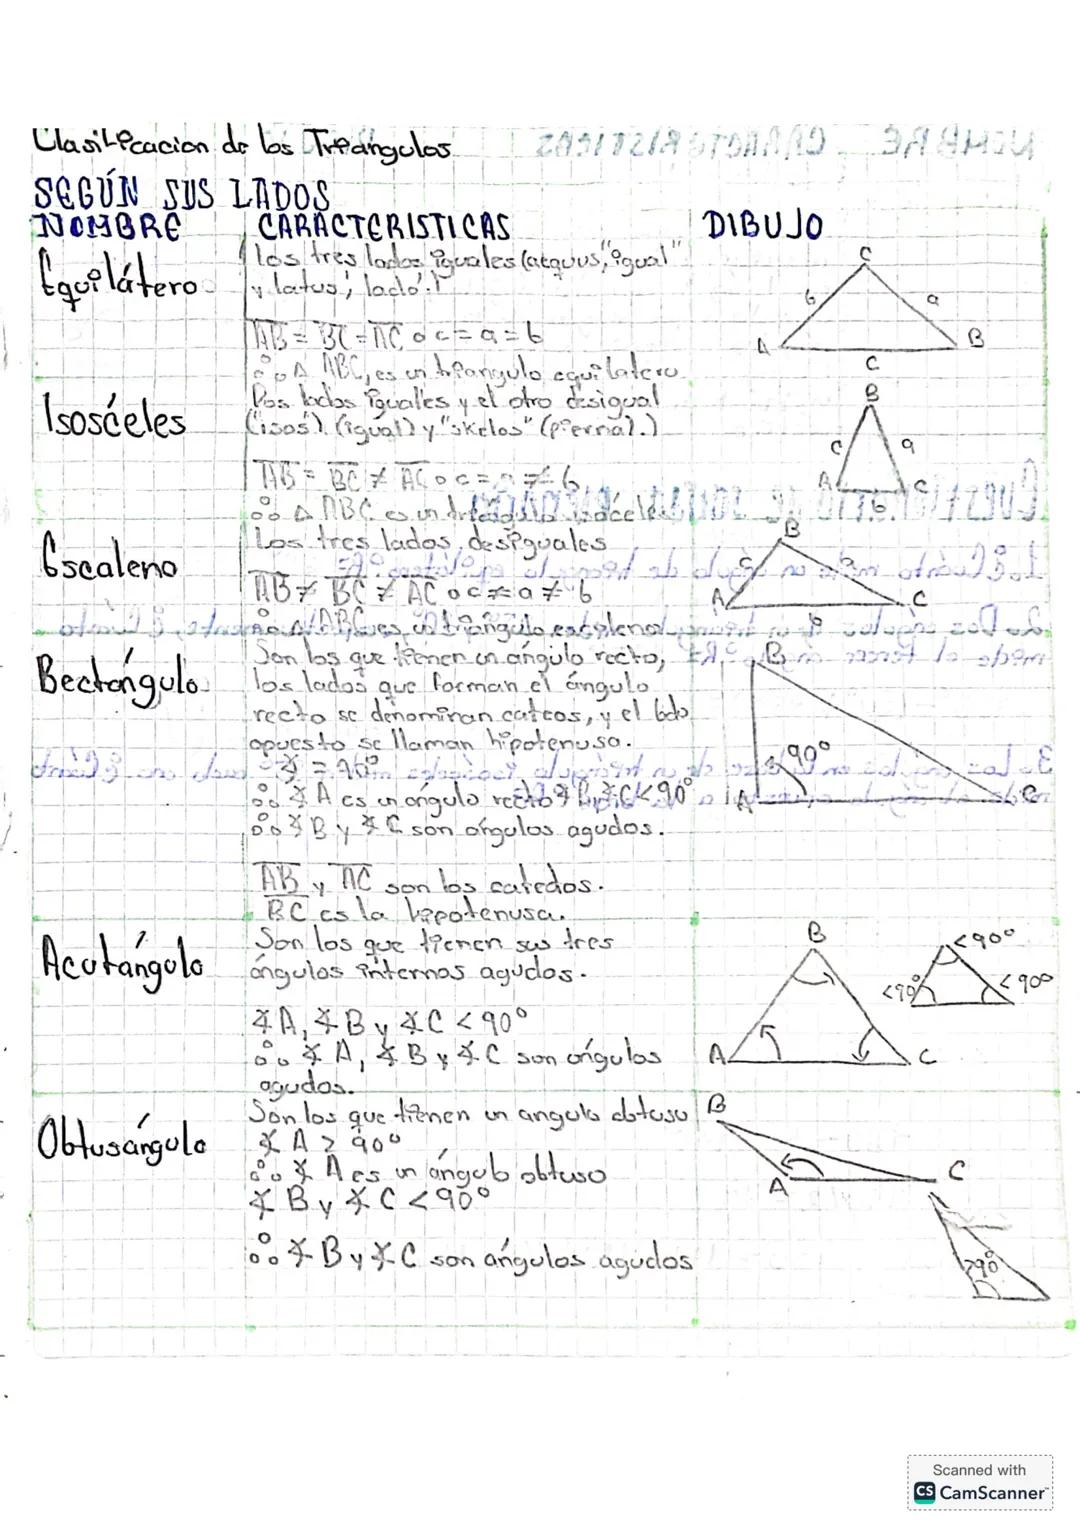 Clasificacion de los Triangulos
SEGÚN SUS LADOS
NOMBRE CARACTERISTICAS DIBUJO
Equilátero
Los tres lados iguales (aequus, "igual"
y latus, lado".)
AB = BC = AC o c = a = b
∴ △ ABC, es un triangulo equilatero.
C
b a
A B
C
Isósceles
Dos lados iguales y el otro desigual
("isos") (igual) y "skelos" (pierna).)
AB = BC ≠ AC o c = a ≠ b
∴ △ ABC es un triangulo isocele
B
c a
A C
b
Escaleno
Los tres lados desiguales
AB ≠ BC ≠ AC o c ≠ a ≠ b
∴ △ ABC es un triángulo escaleno
B
c
A C
b
Rectángulo
Son los que tienen un ángulo recto,
los lados que forman el ángulo
recto se denominan cateos, y el lado
opuesto se llaman hipotenusa.
∡ = 90°
∴ ∡ A es un ángulo recto ∡ B, ∡ C < 90°
∴ ∡ B y ∡ C son ángulos agudos.
AB y AC son los catedos.
BC es la hipotenusa.
B
90°
A C
Acutángulo
Son los que tienen sus tres
ángulos internos agudos.
∡ A, ∡ B y ∡ C < 90°
∴ ∡ A, ∡ B y ∡ C son ángulos
agudos.
B
A C
<90°
<90° <90°
Obtusángulo
Son los que tienen un angulo obtuso
∡ A > 90°
∴ ∡ A es un ángulo obtuso
∡ B y ∡ C < 90°
∴ ∡ B y ∡ C son ángulos agudos
B
A C
>90°
Scanned with
CS CamScanner